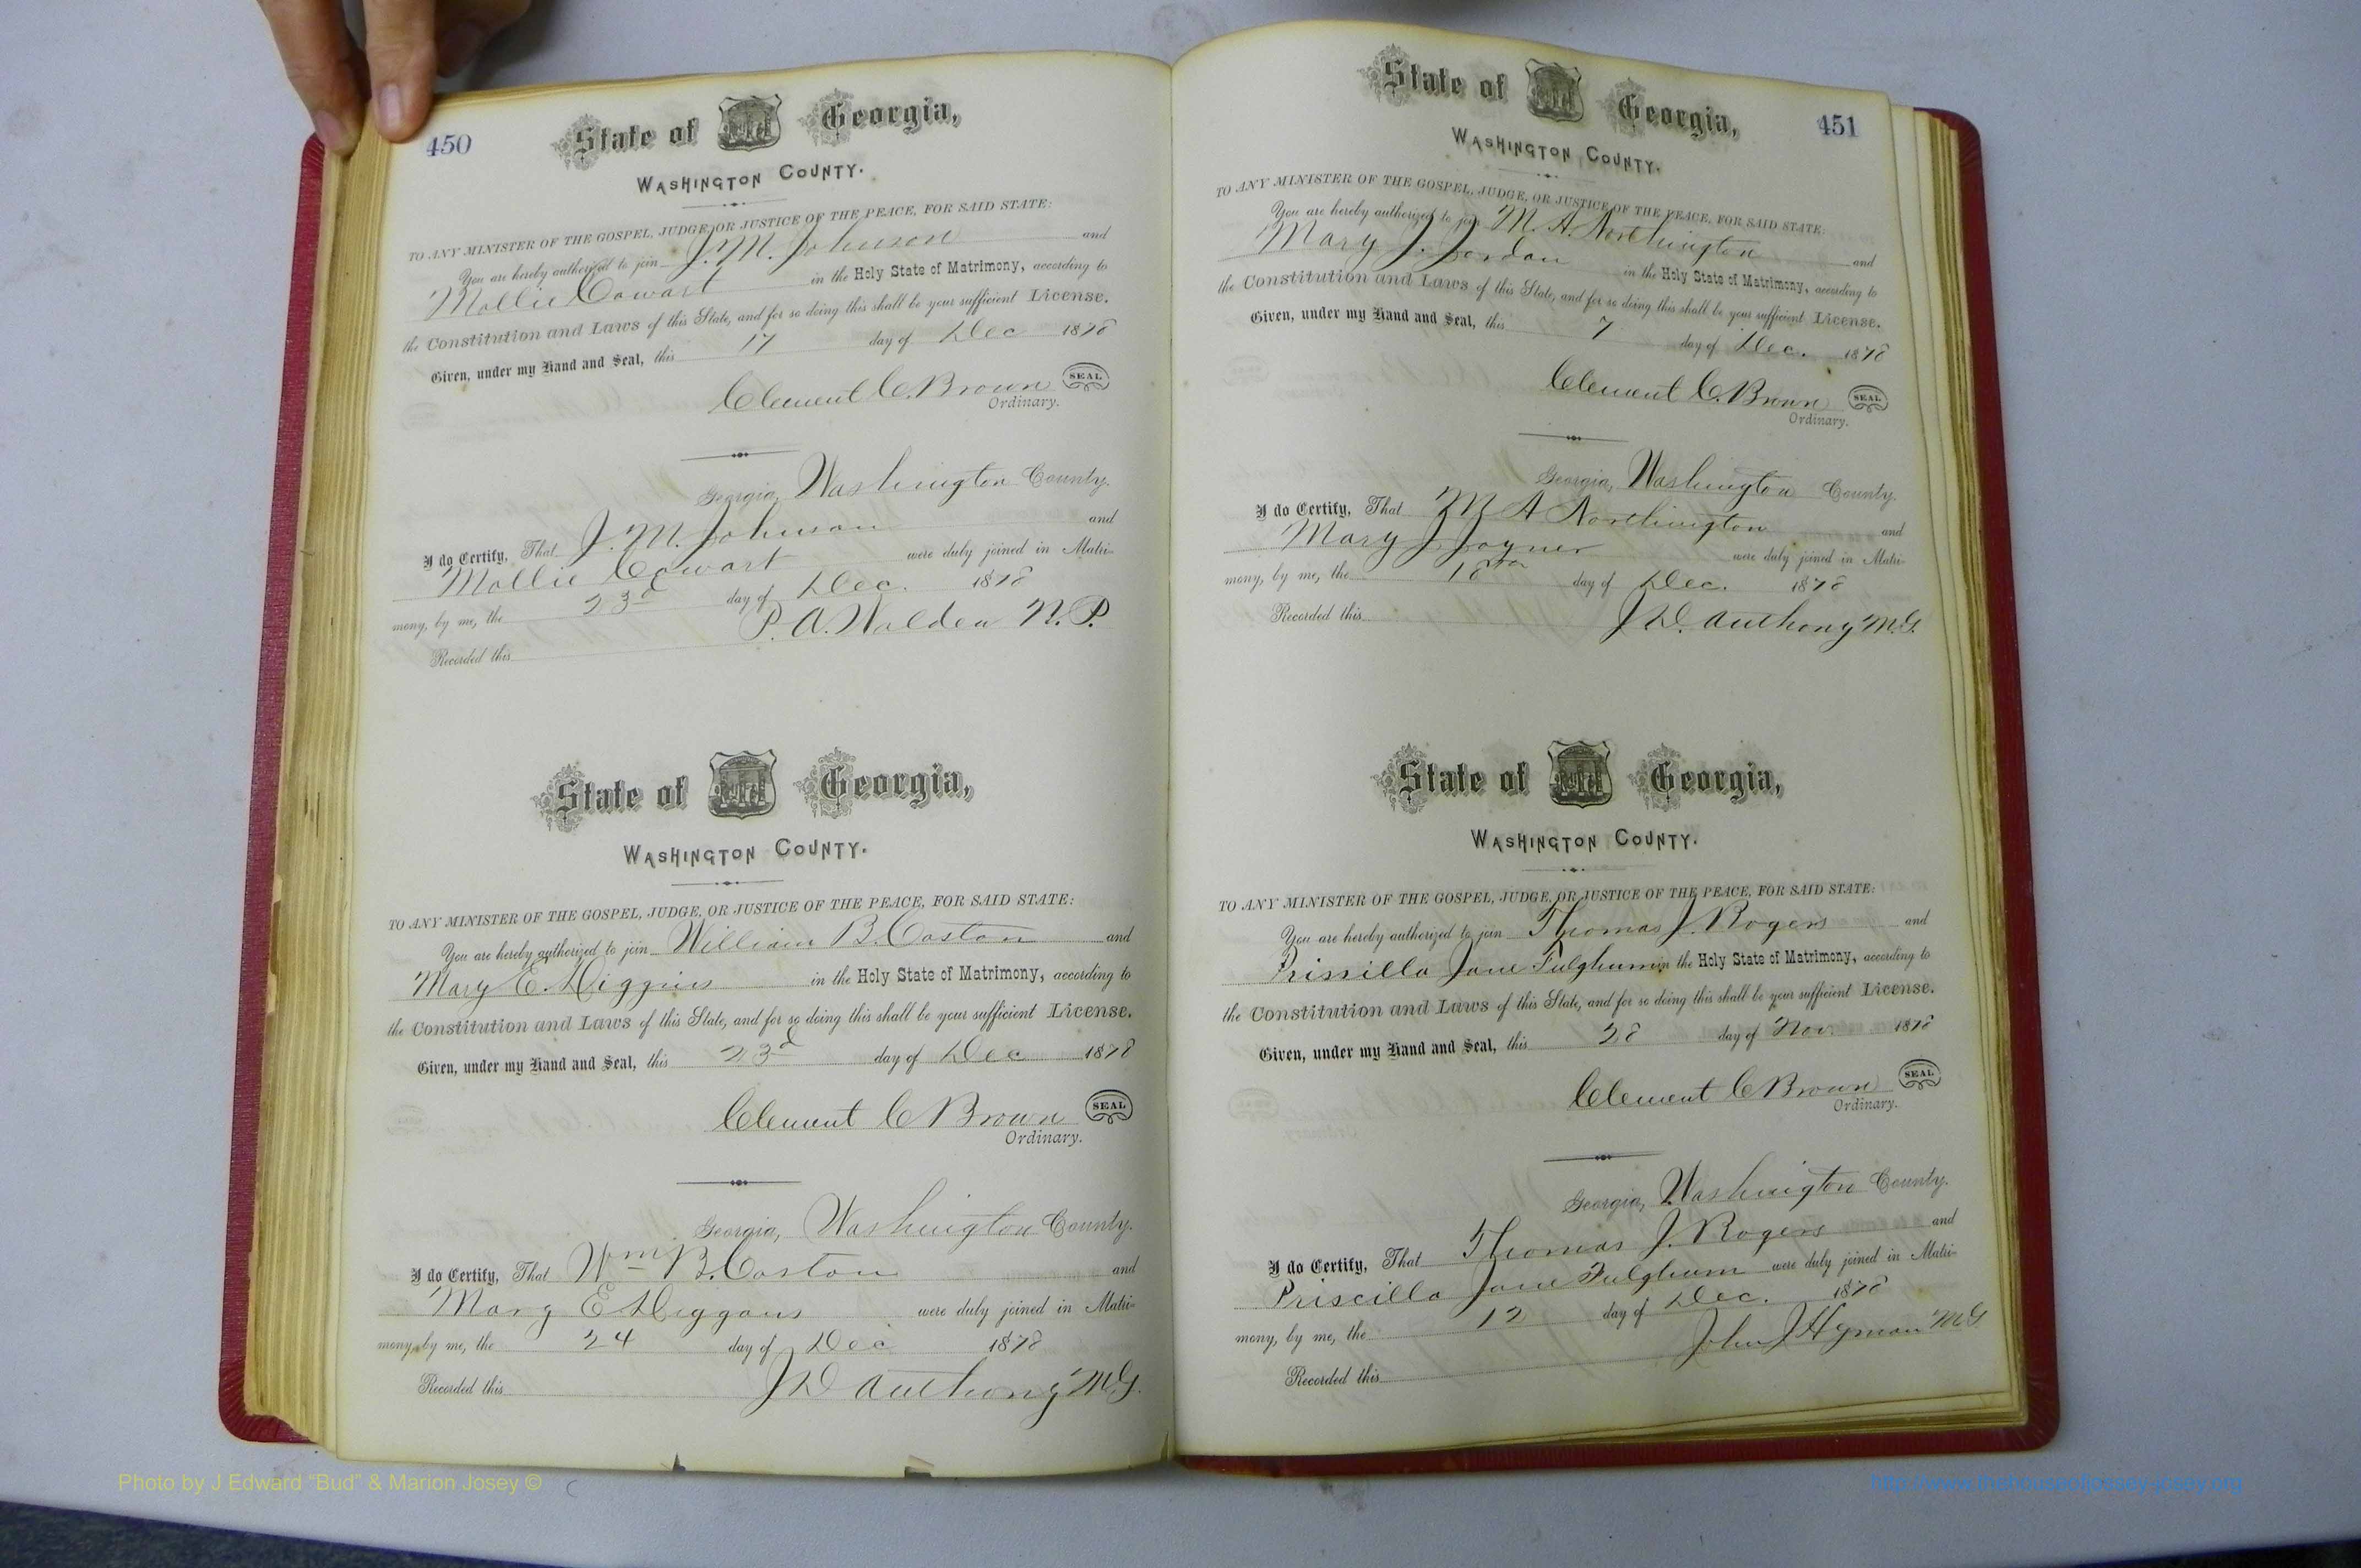 450
State of Georgia,
WASHINGTON COUNTY.
TO ANY MINISTER OF THE GOSPEL, JUDGE, OR JUSTICE OF THE PEACE, FOR SAID STATE:
You are hereby authorized to join J. M. Johnson and
Mollie Cowart in the Holy State of Matrimony, according to
the Constitution and Laws of this State, and for so doing this shall be your sufficient License.
Given, under my Hand and Seal, this 17 day of Dec 1878
Clement C. Brown SEAL
Ordinary.
Georgia, Washington County.
I do Certify, That J. M. Johnson and
Mollie Cowart were duly joined in Matri-
mony, by me, the 23d day of Dec. 1878
P. A. Walden N. P.
Recorded this
State of Georgia,
WASHINGTON COUNTY.
TO ANY MINISTER OF THE GOSPEL, JUDGE, OR JUSTICE OF THE PEACE, FOR SAID STATE:
You are hereby authorized to join William B. Coston and
Mary E. Higgins in the Holy State of Matrimony, according to
the Constitution and Laws of this State, and for so doing this shall be your sufficient License.
Given, under my Hand and Seal, this 23d day of Dec 1878
Clement C Brown SEAL
Ordinary.
Georgia, Washington County.
I do Certify, That Wm B. Coston and
Mary E Higgans were duly joined in Matri-
mony, by me, the 24 day of Dec 1878
J D Anthony M.G.
Recorded this
451
State of Georgia,
WASHINGTON COUNTY.
TO ANY MINISTER OF THE GOSPEL, JUDGE, OR JUSTICE OF THE PEACE, FOR SAID STATE:
You are hereby authorized to join M. A. Northington and
Mary J. Jordan in the Holy State of Matrimony, according to
the Constitution and Laws of this State, and for so doing this shall be your sufficient License.
Given, under my Hand and Seal, this 7 day of Dec. 1878
Clement C. Brown SEAL
Ordinary.
Georgia, Washington County.
I do Certify, That M A Northington and
Mary J Joyner were duly joined in Matri-
mony, by me, the 18th day of Dec. 1878
J D. Anthony M.G.
Recorded this
State of Georgia,
WASHINGTON COUNTY.
TO ANY MINISTER OF THE GOSPEL, JUDGE, OR JUSTICE OF THE PEACE, FOR SAID STATE:
You are hereby authorized to join Thomas J. Rogers and
Prissilla Jane Fulghum in the Holy State of Matrimony, according to
the Constitution and Laws of this State, and for so doing this shall be your sufficient License.
Given, under my Hand and Seal, this 28 day of Nov. 1878
Clement C Brown SEAL
Ordinary.
Georgia, Washington County.
I do Certify, That Thomas J. Rogers and
Priscilla Jane Fulghum were duly joined in Matri-
mony, by me, the 12 day of Dec. 1878
John J Hyman MG
Recorded this
Photo by J Edward “Bud” & Marion Josey ©
http://www.thehouseofjossey-josey.org